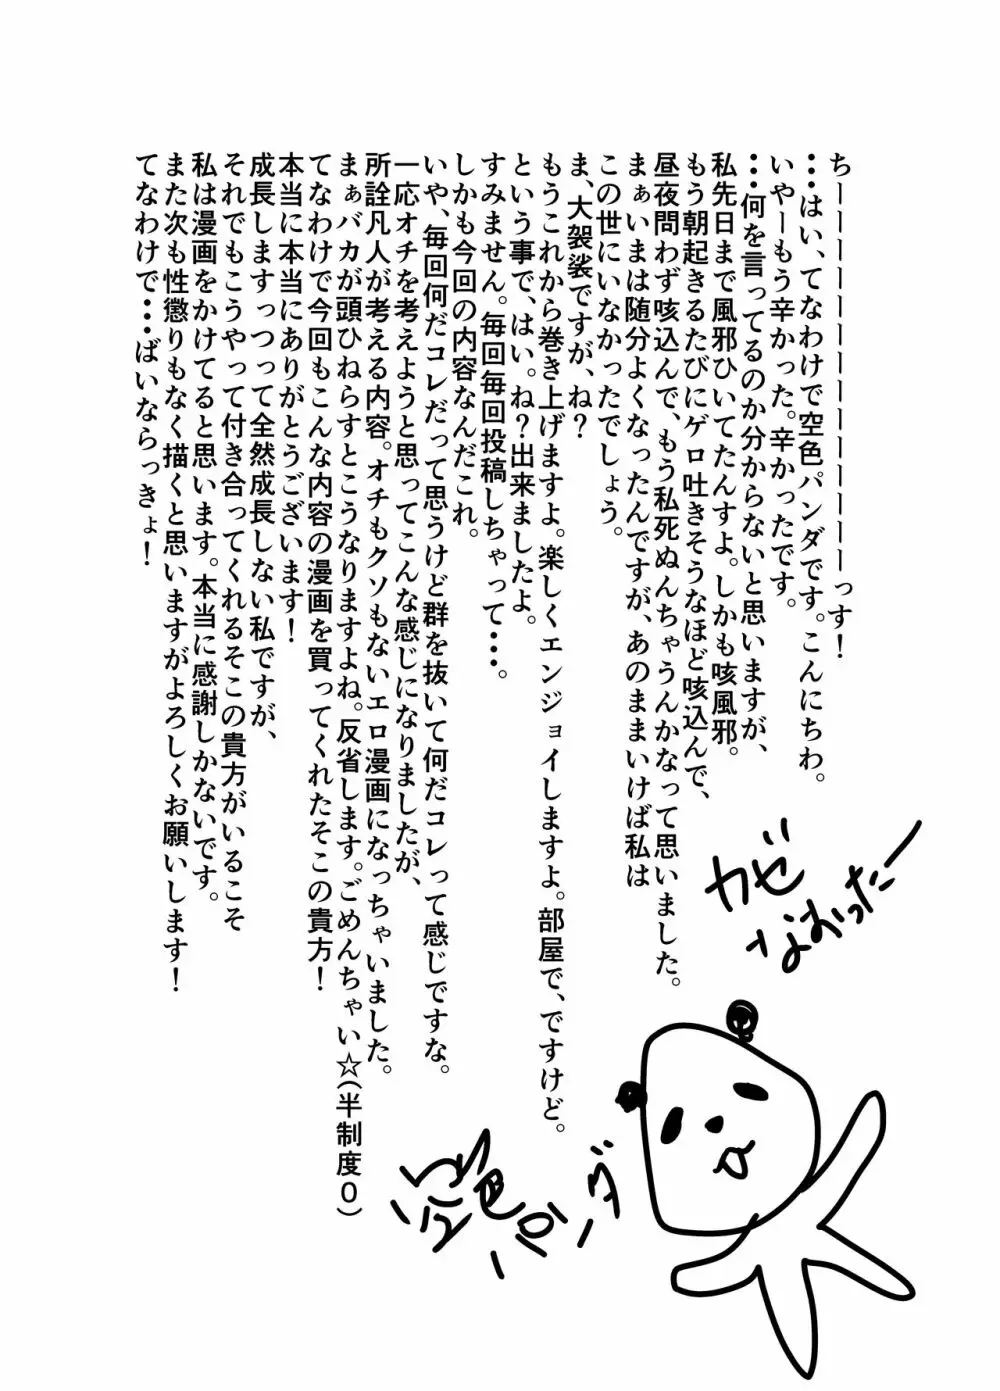 ちーーーーーーーーーーーーーーっす！
・・・はい、てなわけで空色パンダです。こんにちわ。
いやーもう辛かった。辛かったです。
・・・何を言ってるのか分からないと思いますが、
私先日まで風邪ひいてたんすよ。しかも咳風邪。
もう朝起きるたびにゲロ吐きそうなほど咳込んで、
昼夜問わず咳込んで、もう私死ぬんちゃうんかなって思いました。
まぁいまは随分よくなったんですが、あのままいけば私は
この世にいなかったでしょう。
ま、大袈裟ですが、ね？
もうこれから巻き上げますよ。楽しくエンジョイしますよ。部屋で、ですけど。
という事で、はい。ね？出来ましたよ。
すみません。毎回毎回投稿しちゃって・・・。
しかも今回の内容なんだこれ。
いや、毎回何だコレだって思うけど群を抜いて何だコレって感じですな。
一応オチを考えようと思ってこんな感じになりましたが、
所詮凡人が考える内容。オチもクソもないエロ漫画になっちゃいました。
まぁバカが頭ひねらすとこうなりますよね。反省します。ごめんちゃい☆(半制度０)
てなわけで今回もこんな内容の漫画を買ってくれたそこの貴方！
本当に本当にありがとうございます！
成長しますっつって全然成長しない私ですが、
それでもこうやって付き合ってくれるそこの貴方がいるこそ
私は漫画をかけてると思います。本当に感謝しかないです。
また次も性懲りもなく描くと思いますがよろしくお願いします！
てなわけで・・・ばいならっきょ！
カゼ
なおったー
空色
パンダ